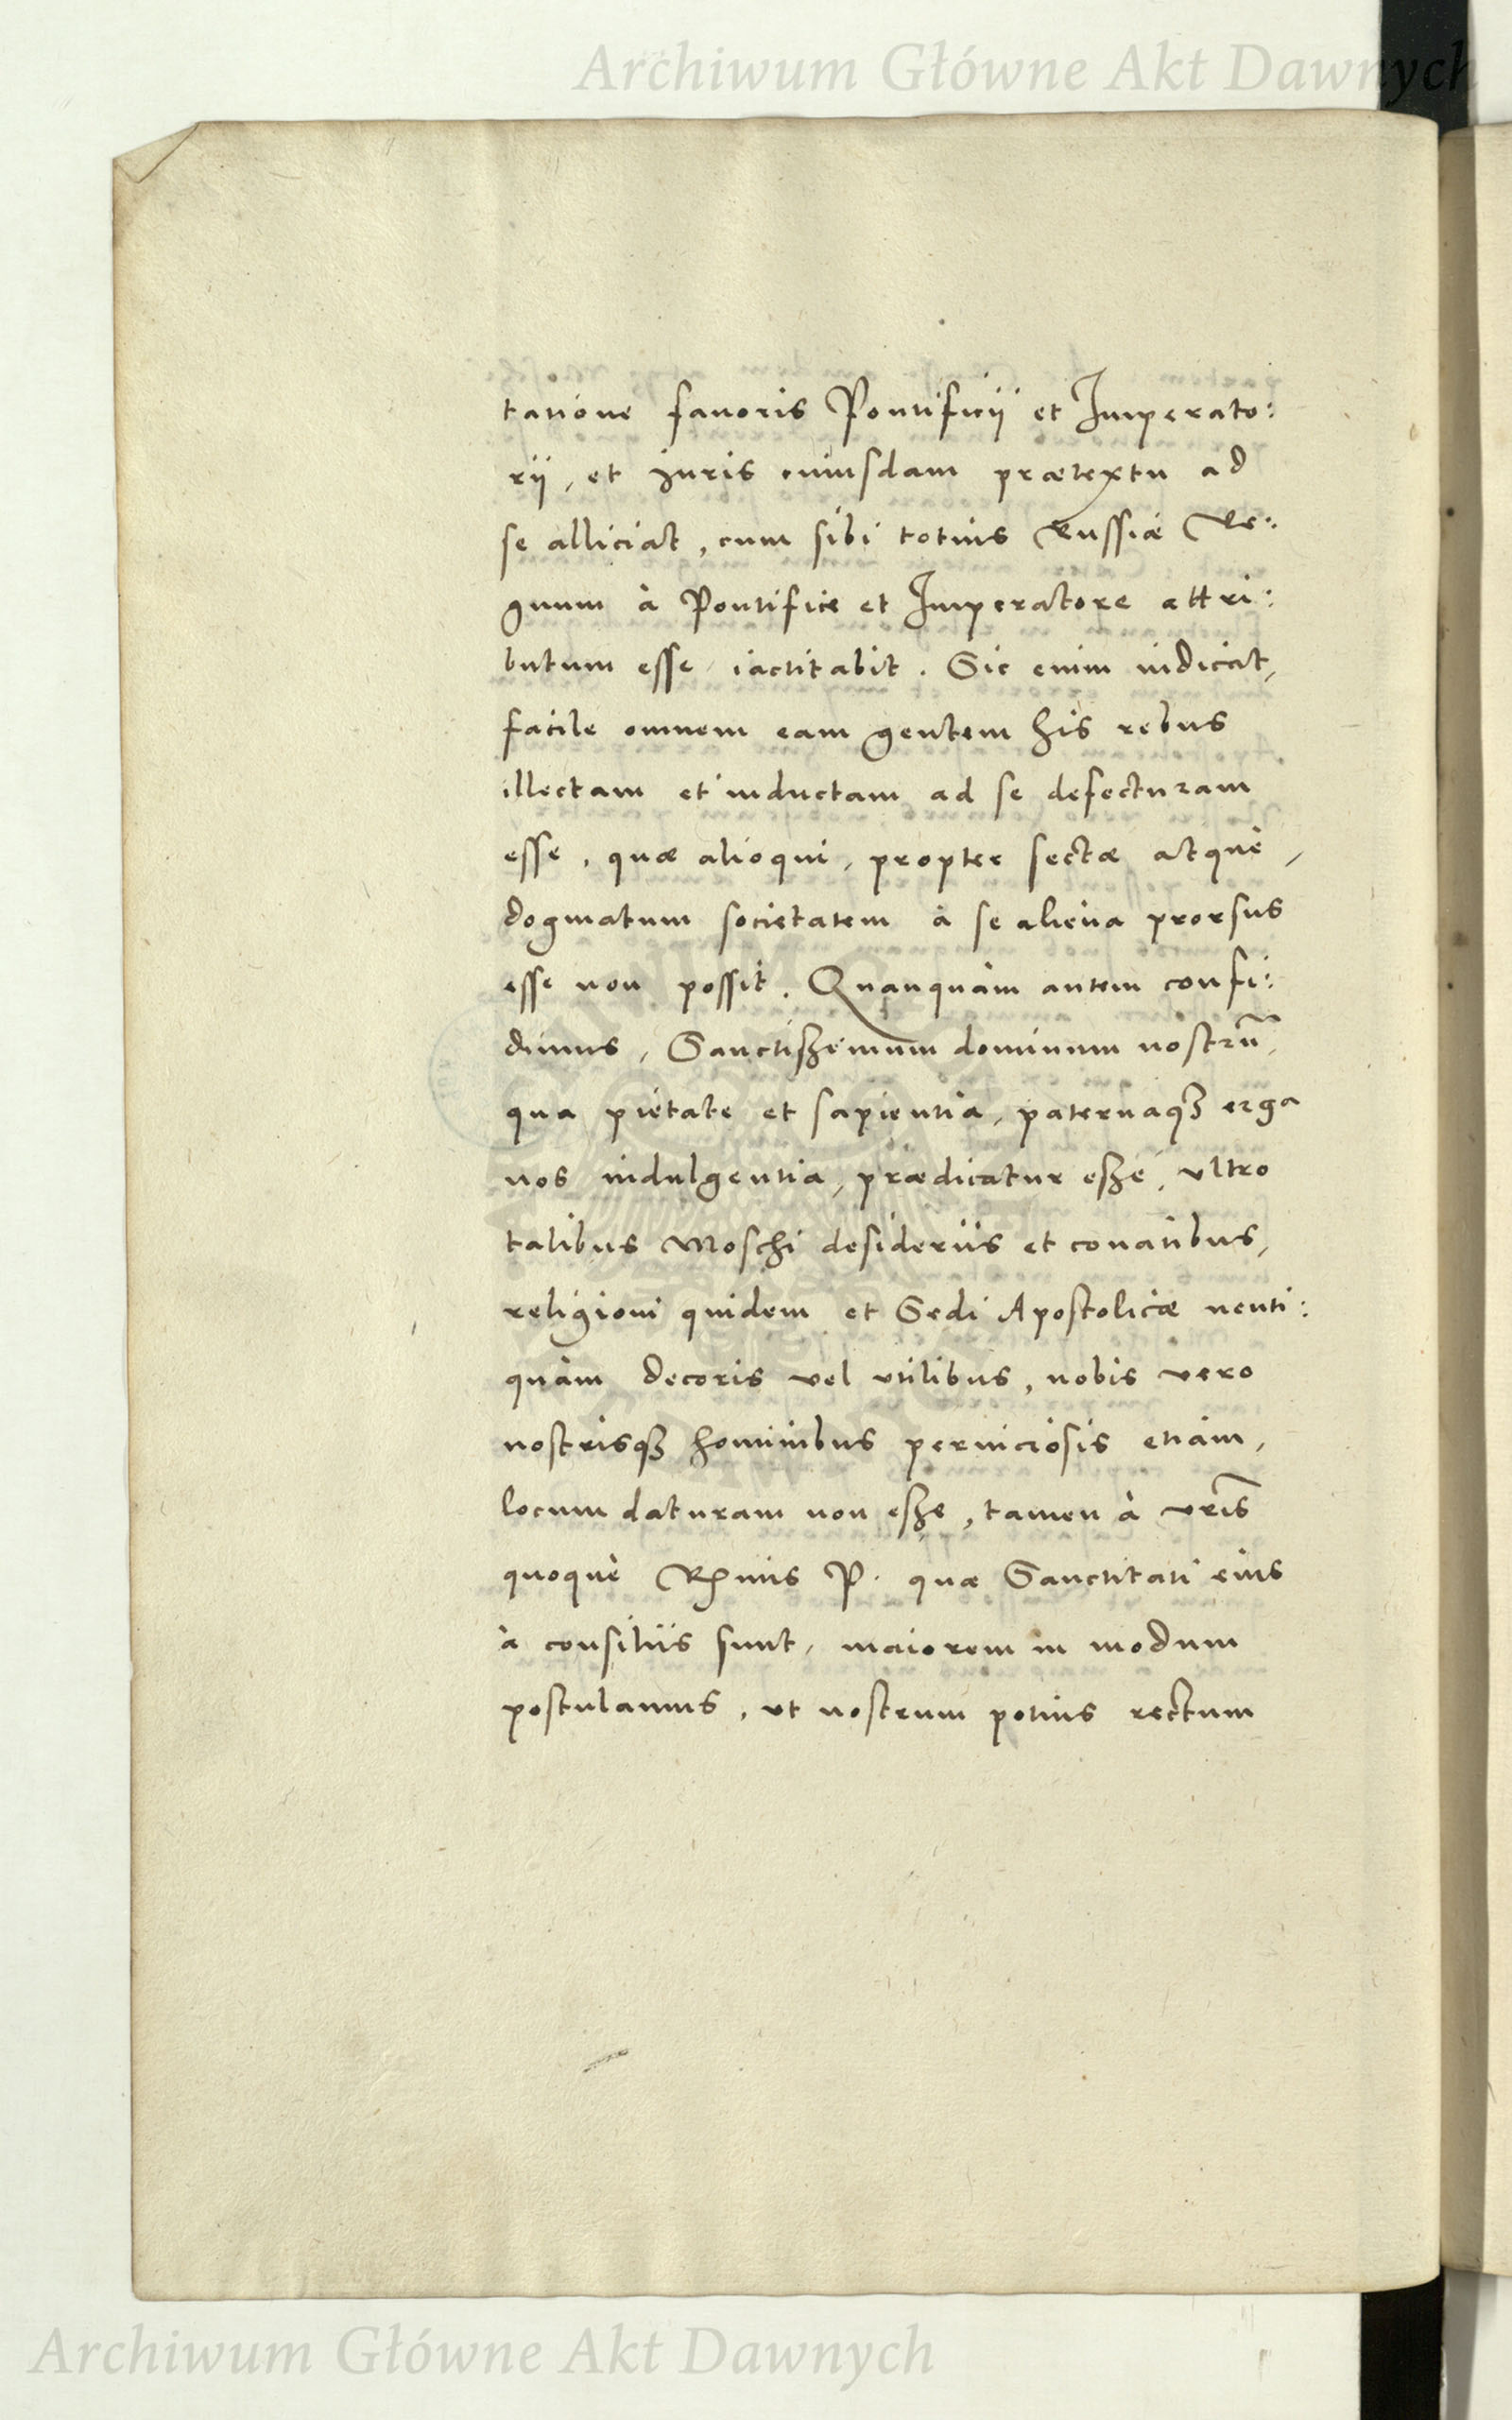 Archiwum Główne Akt Dawnych
tatione fauoris Pontificii et Imperato:
rij, et iuris cuiusdam prætextu ad
se alliciat, cum sibi totius Russiæ Re:
gnum à Pontifice et Imperatore attri:
butum esse iactitabit. Sic enim iudicat,
facile omnem eam gentem his rebus
illectam et inductam ad se defecturam
esse, quæ alioqui, propter sectæ atquè,
dogmatum societatem à se aliena prorsus
esse non possit. Quanquàm autem confi:
dimus, Sanctißimum dominum nostrū,
qua pietate et sapientia, paternaqꝫ erga
nos indulgentia, prædicatur eße, vltro
talibus Moschi desideriis et conatibus,
religioni quidem et Sedi Apostolicæ neuti:
quàm decoris vel vtilibus, nobis vero
nostrisqꝫ hominibus perniciosis etiam,
locum daturam non eße, tamen à vrīs
quoquè Rmis P. quæ Sanctitati eius
à consiliis sunt, maiorem in modum
postulamus, vt nostrum potius rectum
Archiwum Główne Akt Dawnych